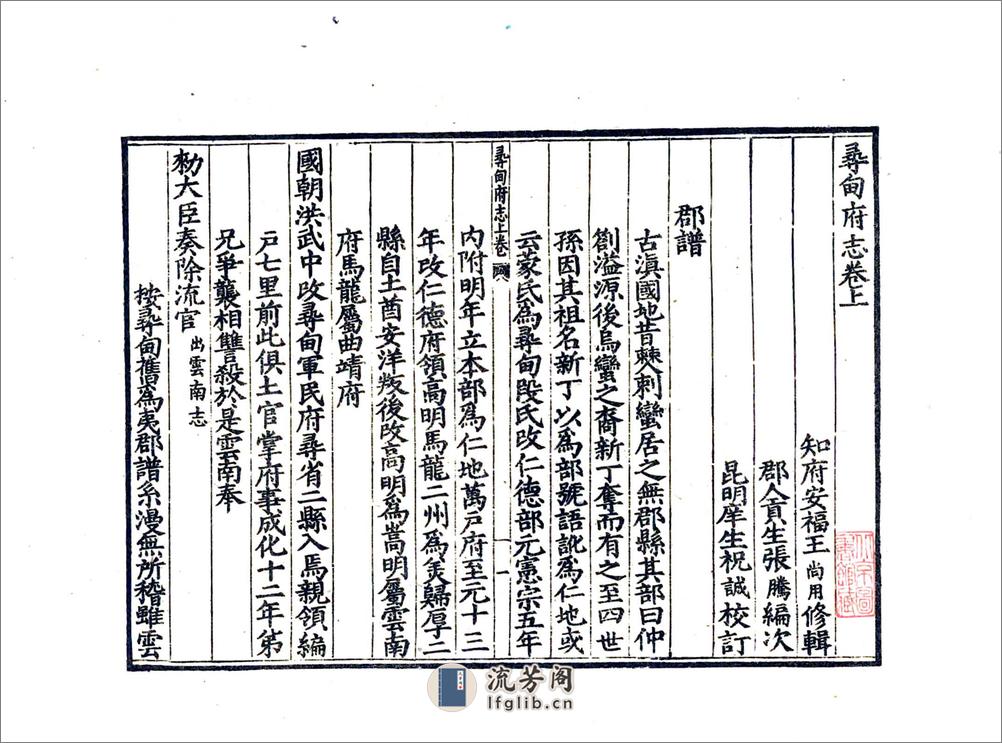 尋甸府志卷上
知府安福王尚用修輯
郡人貢生張騰編次
昆明庠生祝誠校訂
郡譜
古滇國地昔僰剌蠻居之無郡縣其部曰仲
劄溢源後烏蠻之裔新丁奪而有之至四世
孫因其祖名新丁以為部號語訛為仁地或
云蒙氏為尋甸段氏改仁德部元憲宗五年
尋甸府志上卷
一
內附明年立本部為仁地萬戶府至元十三
年改仁德府領高明馬龍二州為美歸厚二
縣自土酋安洋叛後改高明為嵩明屬雲南
府馬龍屬曲靖府
國朝洪武中改尋甸軍民府尋省二縣入焉親領編
戶七里前此俱土官掌府事成化十二年第
兄爭襲相讐殺於是雲南奉
勑大臣奏除流官出雲南志
按尋甸舊為夷郡譜系漫無所稽雖雲
流芳阁
lfglib.cn